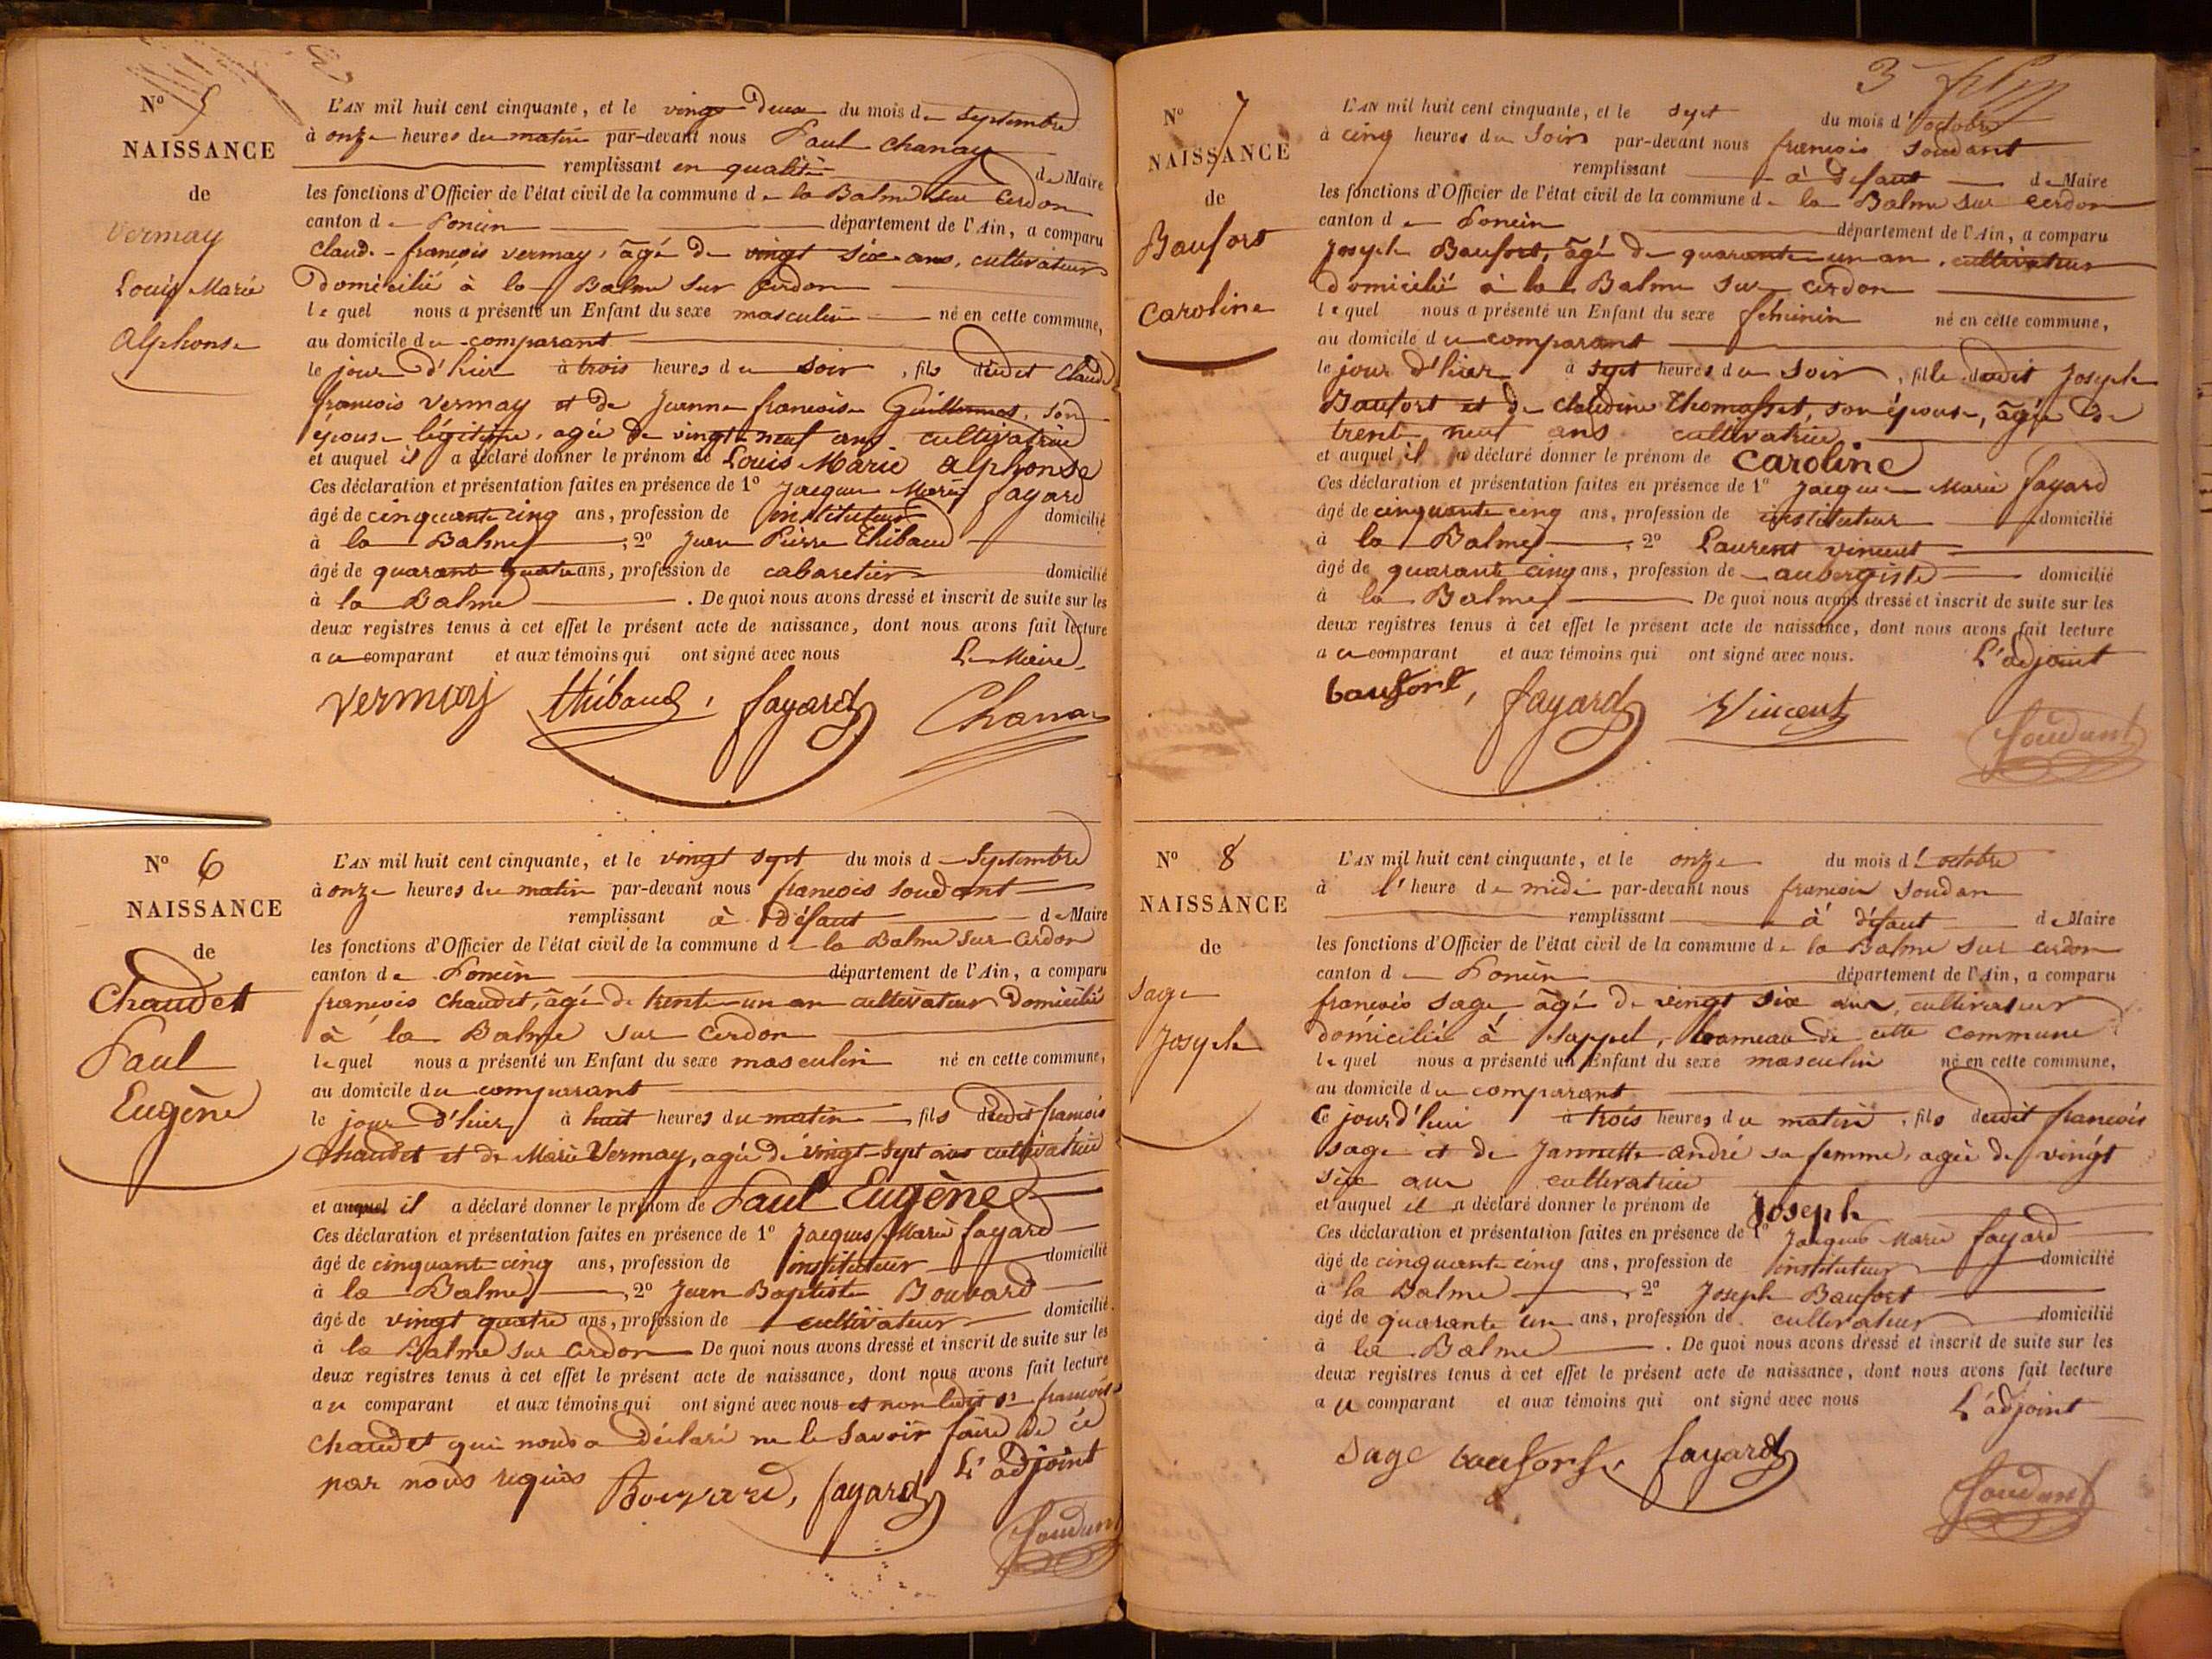 N° 5
NAISSANCE
de
Vermay
Louis Marie
Alphonse
L'AN mil huit cent cinquante, et le vingt deux du mois de septembre
à onze heures du matin par-devant nous Paul Chanay
remplissant en qualité de Maire
les fonctions d'Officier de l'état civil de la commune de la Balme sur Cerdon
canton de Poncin département de l'Ain, a comparu
Claude-françois vermay, âgé de vingt six ans, cultivateur
Domicilié à la Balme sur Cerdon
lequel nous a présenté un Enfant du sexe masculin né en cette commune,
au domicile du comparant
le jour d'hier à trois heures du soir, fils dudit Claude
françois vermay et de Jeanne françoise Guillermet, son
épouse légitime, agée de vingt neuf ans cultivatrice
et auquel il a déclaré donner le prénom de Louis Marie Alphonse
Ces déclaration et présentation faites en présence de 1° Jacques Marie fayard
âgé de cinquante cinq ans, profession de instituteur domicilié
à la Balme, 2° Jean Pierre Thibaud
âgé de quarante quatre ans, profession de cabaretier domicilié
à la Balme. De quoi nous avons dressé et inscrit de suite sur les
deux registres tenus à cet effet le présent acte de naissance, dont nous avons fait lecture
au comparant et aux témoins qui ont signé avec nous Le Maire
vermay thibaud, fayard Chanay
N° 6
NAISSANCE
de
Chaudet
Paul
Eugène
L'AN mil huit cent cinquante, et le vingt sept du mois de Septembre
à onze heures du matin par-devant nous françois soudant
remplissant à défaut de Maire
les fonctions d'Officier de l'état civil de la commune de la Balme sur Cerdon
canton de Poncin département de l'Ain, a comparu
françois Chaudet, âgé de trente-un an cultivateur Domicilié
à la Balme sur Cerdon
lequel nous a présenté un Enfant du sexe masculin né en cette commune,
au domicile du comparant
le jour d'hier à huit heures du matin fils dudit françois
Chaudet et de Marie Vermay, agée de vingt-sept ans cultivatrice
et auquel il a déclaré donner le prénom de Paul Eugène
Ces déclaration et présentation faites en présence de 1° Jacques Marie fayard
âgé de cinquante-cinq ans, profession de instituteur domicilié
à la Balme, 2° Jean Baptiste Bouvard
âgé de vingt quatre ans, profession de cultivateur domicilié
à la Balme sur Cerdon De quoi nous avons dressé et inscrit de suite sur les
deux registres tenus à cet effet le présent acte de naissance, dont nous avons fait lecture
au comparant et aux témoins qui ont signé avec nous et non ledit sr françois
Chaudet qui nous a déclaré ne le savoir faire de ce
par nous requis Bouvard, fayard L'adjoint
Soudant
3
N° 7
NAISSANCE
de
Baufort
Caroline
L'AN mil huit cent cinquante, et le sept du mois d'octobre
à cinq heures du soir par-devant nous françois soudant
remplissant à défaut de Maire
les fonctions d'Officier de l'état civil de la commune de la Balme sur Cerdon
canton de Poncin département de l'Ain, a comparu
Joseph Baufort, âgé de quarante-un an, cultivateur
domicilié à la Balme sur Cerdon
lequel nous a présenté un Enfant du sexe féminin né en cette commune,
au domicile du comparant
le jour d'hier à sept heures du soir, fille dudit Joseph
Baufort et de Claudine Thomasset, son épouse, âgée de
trente neuf ans cultivatrice
et auquel il a déclaré donner le prénom de Caroline
Ces déclaration et présentation faites en présence de 1° Jacques Marie fayard
âgé de cinquante cinq ans, profession de instituteur domicilié
à la Balme, 2° Laurent vincent
âgé de quarante cinq ans, profession de aubergiste domicilié
à la Balme De quoi nous avons dressé et inscrit de suite sur les
deux registres tenus à cet effet le présent acte de naissance, dont nous avons fait lecture
au comparant et aux témoins qui ont signé avec nous. L'adjoint
baufort, fayard Vincent Soudant
N° 8
NAISSANCE
de
Sage
Joseph
L'AN mil huit cent cinquante, et le onze du mois d'octobre
à l'heure de midi par-devant nous françois soudan
remplissant à défaut de Maire
les fonctions d'Officier de l'état civil de la commune de la Balme sur Cerdon
canton de Poncin département de l'Ain, a comparu
françois sage, âgé de vingt six ans, cultivateur
domicilié à sappel, hameau de cette commune
lequel nous a présenté un Enfant du sexe masculin né en cette commune,
au domicile du comparant
ce jourd'hui à trois heures du matin, fils dudit françois
sage et de Jannette andré sa femme, agée de vingt
six ans cultivatrice
et auquel il a déclaré donner le prénom de Joseph
Ces déclaration et présentation faites en présence de 1° Jacques Marie fayard
âgé de cinquante cinq ans, profession de instituteur domicilié
à la Balme, 2° Joseph Baufort
âgé de quarante un ans, profession de cultivateur domicilié
à la Balme. De quoi nous avons dressé et inscrit de suite sur les
deux registres tenus à cet effet le présent acte de naissance, dont nous avons fait lecture
au comparant et aux témoins qui ont signé avec nous L'adjoint
Sage baufort, fayard Soudant